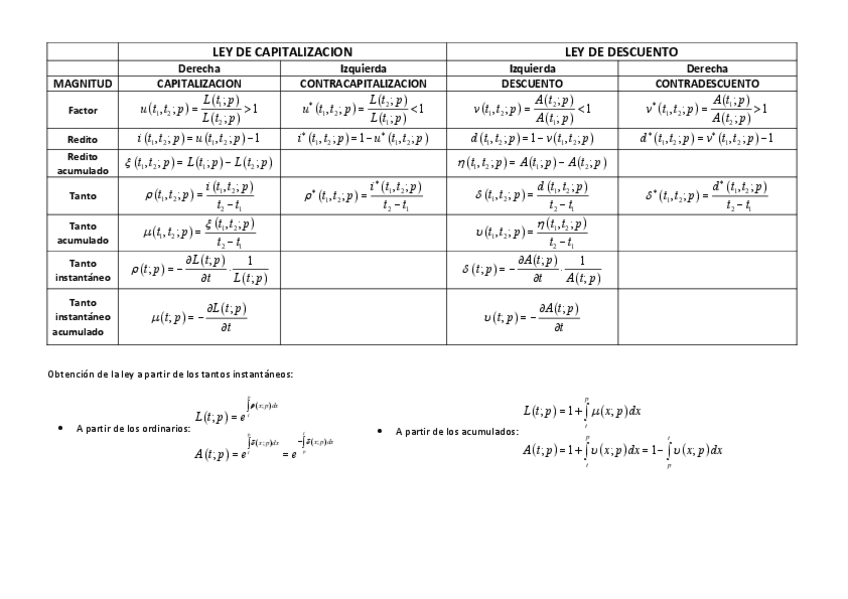 LEY DE CAPITALIZACION LEY DE DESCUENTO
Derecha Izquierda Izquierda Derecha
MAGNITUD CAPITALIZACION CONTRACAPITALIZACION DESCUENTO CONTRADESCUENTO
Factor u(t₁,t₂;p) = L(t₁;p)/L(t₂;p) >1 u*(t₁,t₂;p) = L(t₂;p)/L(t₁;p) <1 v(t₁,t₂;p) = A(t₂;p)/A(t₁;p) <1 v*(t₁,t₂;p) = A(t₁;p)/A(t₂;p) >1
Redito i(t₁,t₂;p) = u(t₁,t₂;p) −1 i*(t₁,t₂;p) = 1−u*(t₁,t₂;p) d(t₁,t₂;p) = 1−v(t₁,t₂;p) d*(t₁,t₂;p) = v*(t₁,t₂;p) −1
Redito
acumulado ξ(t₁,t₂;p) = L(t₁;p) − L(t₂;p) η(t₁,t₂;p) = A(t₁;p) − A(t₂;p)
Tanto ρ(t₁,t₂;p) = i(t₁,t₂;p)/(t₂ − t₁) ρ*(t₁,t₂;p) = i*(t₁,t₂;p)/(t₂ − t₁) δ(t₁,t₂;p) = d(t₁,t₂;p)/(t₂ − t₁) δ*(t₁,t₂;p) = d*(t₁,t₂;p)/(t₂ − t₁)
Tanto
acumulado μ(t₁,t₂;p) = ξ(t₁,t₂;p)/(t₂ − t₁) υ(t₁,t₂;p) = η(t₁,t₂;p)/(t₂ − t₁)
Tanto
instantáneo ρ(t;p) = − ∂L(t;p)/∂t · 1/L(t;p) δ(t;p) = − ∂A(t;p)/∂t · 1/A(t;p)
Tanto
instantáneo
acumulado μ(t;p) = − ∂L(t;p)/∂t υ(t;p) = − ∂A(t;p)/∂t
Obtención de la ley a partir de los tantos instantáneos:
• A partir de los ordinarios:
L(t;p) = e^(∫ₜᵖ ρ(x;p)dx)
A(t;p) = e^(∫ₜᵖ δ(x;p)dx) = e^(−∫ₚᵗ δ(x;p)dx)
• A partir de los acumulados:
L(t;p) = 1+∫ₜᵖ μ(x;p)dx
A(t;p) = 1+∫ₜᵖ υ(x;p)dx = 1−∫ₚᵗ υ(x;p)dx